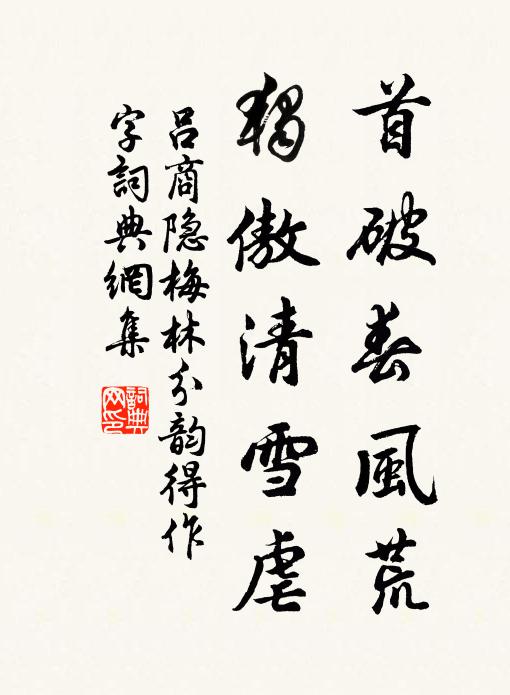 首破春風荒
獨傲清雪虐
吕商隐梅林分韵得作
字詞典網集
詞典
网印